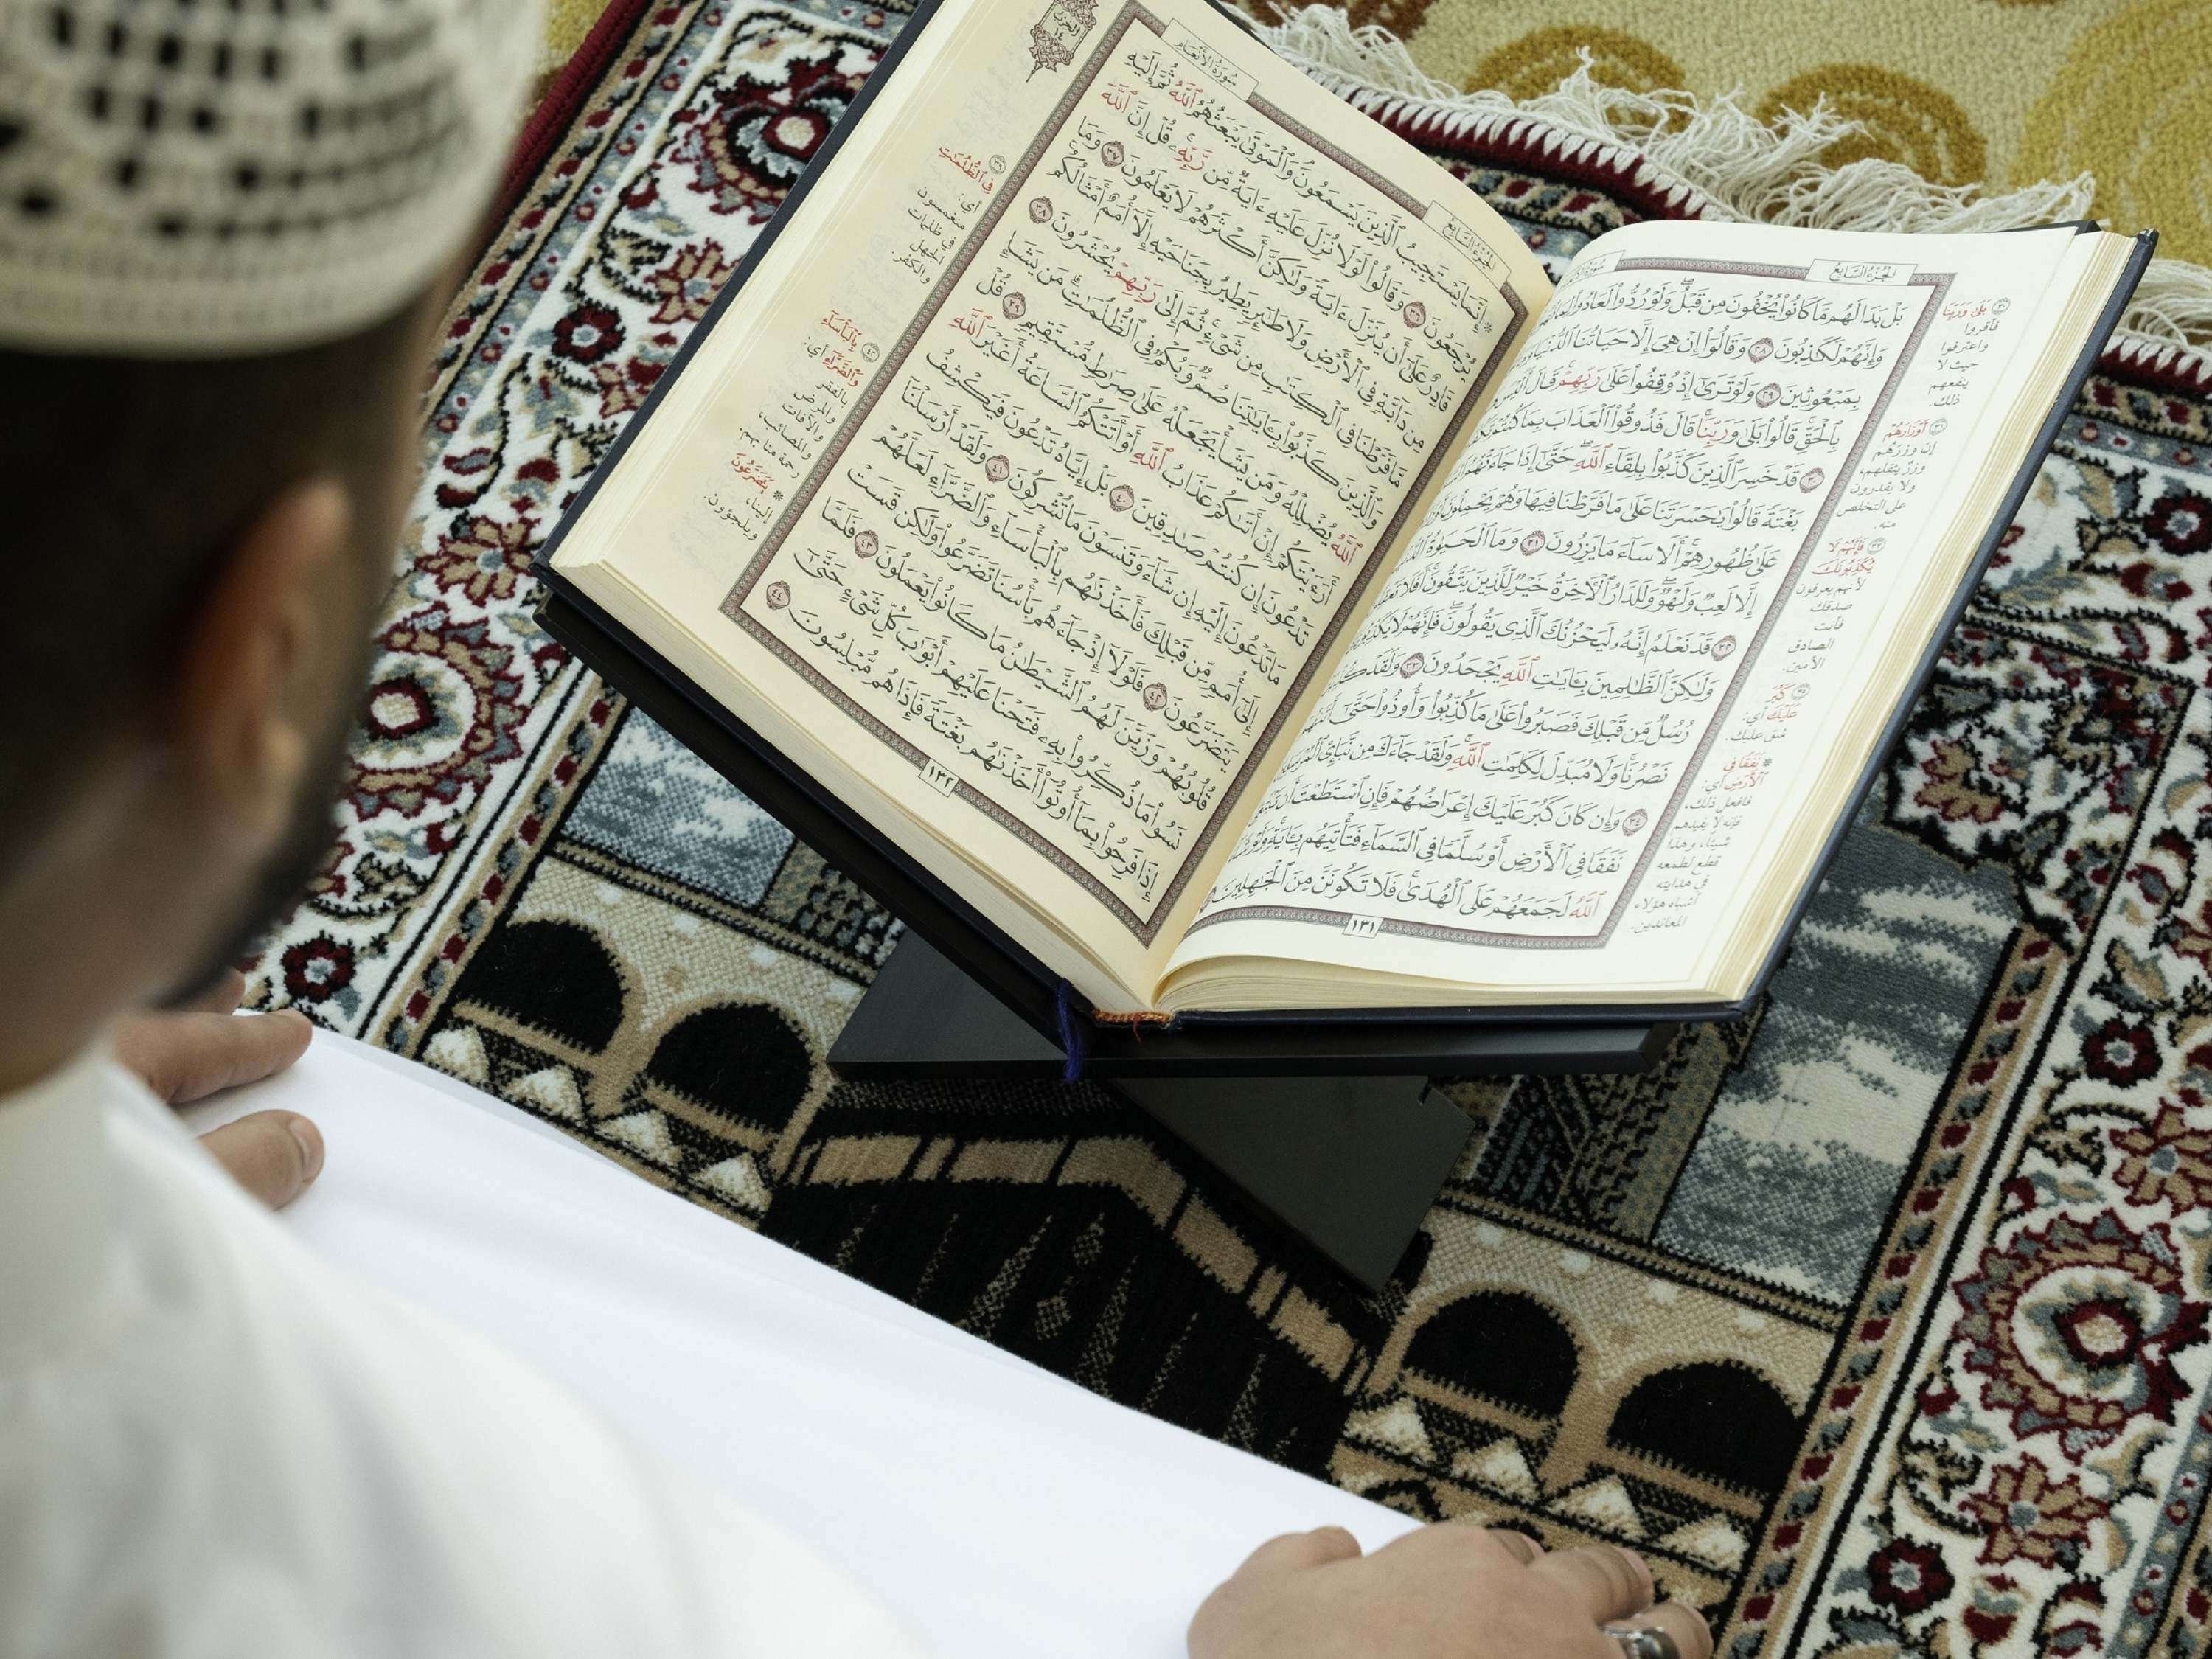 الجزء السابع
بل بدا لهم ما كانوا يخفون من قبل ولو ردوا لعادوا لما
وإنهم لكاذبون ٢٨ وقالوا إن هي إلا حياتنا الدنيا
بمبعوثين ٢٩ ولو ترى إذ وقفوا على ربهم قال أليس
بالحق قالوا بلى وربنا قال فذوقوا العذاب بما كنتم
٣٠ قد خسر الذين كذبوا بلقاء الله حتى إذا جاءتهم
بغتة قالوا يحسرتنا على ما فرطنا فيها وهم يحملون
على ظهورهم ألا ساء ما يزرون ٣١ وما الحيوة
إلا لعب ولهو وللدار الآخرة خير للذين يتقون أفلا
٣٢ قد نعلم إنه ليحزنك الذي يقولون فإنهم لا
ولكن الظلمين بئايت الله يجحدون ٣٣ ولقد
رسل من قبلك فصبروا على ما كذبوا وأوذوا حتى
نصرنا ولا مبدل لكلمت الله ولقد جاءك من نبإى
٣٤ وإن كان كبر عليك إعراضهم فإن استطعت أن
نفقا في الأرض أو سلما في السماء فتأتيهم بئاية ولو
الله لجمعهم على الهدى فلا تكونن من الجهلين
١٣١
٣٠ بلى وربنا
فأقروا
واعترفوا
حيث لا
ينفعهم
ذلك.
٣١ أوزارهم
إن وزرهم
وزر يثقلهم،
ولا يقدرون
على التخلص
منه.
٣٣ فإنهم لا
يكذبونك
لأنهم يعرفون
صدقك
فأنت
الصادق
الأمين.
٣٥ كبر
عليك أي:
شق عليك.
* نفقا في
الأرض أي:
فافعل ذلك،
فإنه لا يفيدهم
شيئا، وهذا
قطع لطمعه
في هدايته
أشباه هؤلاء
المعاندين.
سورة الأنعام
الجزء السابع
* إنما يستجيب الذين يسمعون والموتى يبعثهم الله ثم إليه
يرجعون ٣٦ وقالوا لولا نزل عليه ءاية من ربه قل إن الله
قادر على أن ينزل ءاية ولكن أكثرهم لا يعلمون ٣٧ وما
من دابة في الأرض ولا طئر يطير بجناحيه إلا أمم أمثالكم
ما فرطنا في الكتب من شيء ثم إلى ربهم يحشرون ٣٨
والذين كذبوا بئايتنا صم وبكم في الظلمت من يشإ
الله يضلله ومن يشأ يجعله على صرط مستقيم ٣٩ قل
أرءيتكم إن أتىكم عذاب الله أو أتتكم الساعة أغير الله
تدعون إن كنتم صدقين ٤٠ بل إياه تدعون فيكشف
ما تدعون إليه إن شاء وتنسون ما تشركون ٤١ ولقد أرسلنا
إلى أمم من قبلك فأخذنهم بالبأساء والضراء لعلهم
يتضرعون ٤٢ فلولا إذ جاءهم بأسنا تضرعوا ولكن قست
قلوبهم وزين لهم الشيطن ما كانوا يعملون ٤٣ فلما
نسوا ما ذكروا به فتحنا عليهم أبوب كل شيء حتى
إذا فرحوا بما أوتوا أخذنهم بغتة فإذا هم مبلسون ٤٤
١٣٢
٣٩ في الظلمت
أي:
منغمسون
في ظلمات
الجهل
والكفر.
٤٢ بالبأساء
والضراء أي:
بالفقر
والمرض
والآفات
والمصائب،
رحمة منا بهم.
* يتضرعون
إلينا،
ويلجؤون